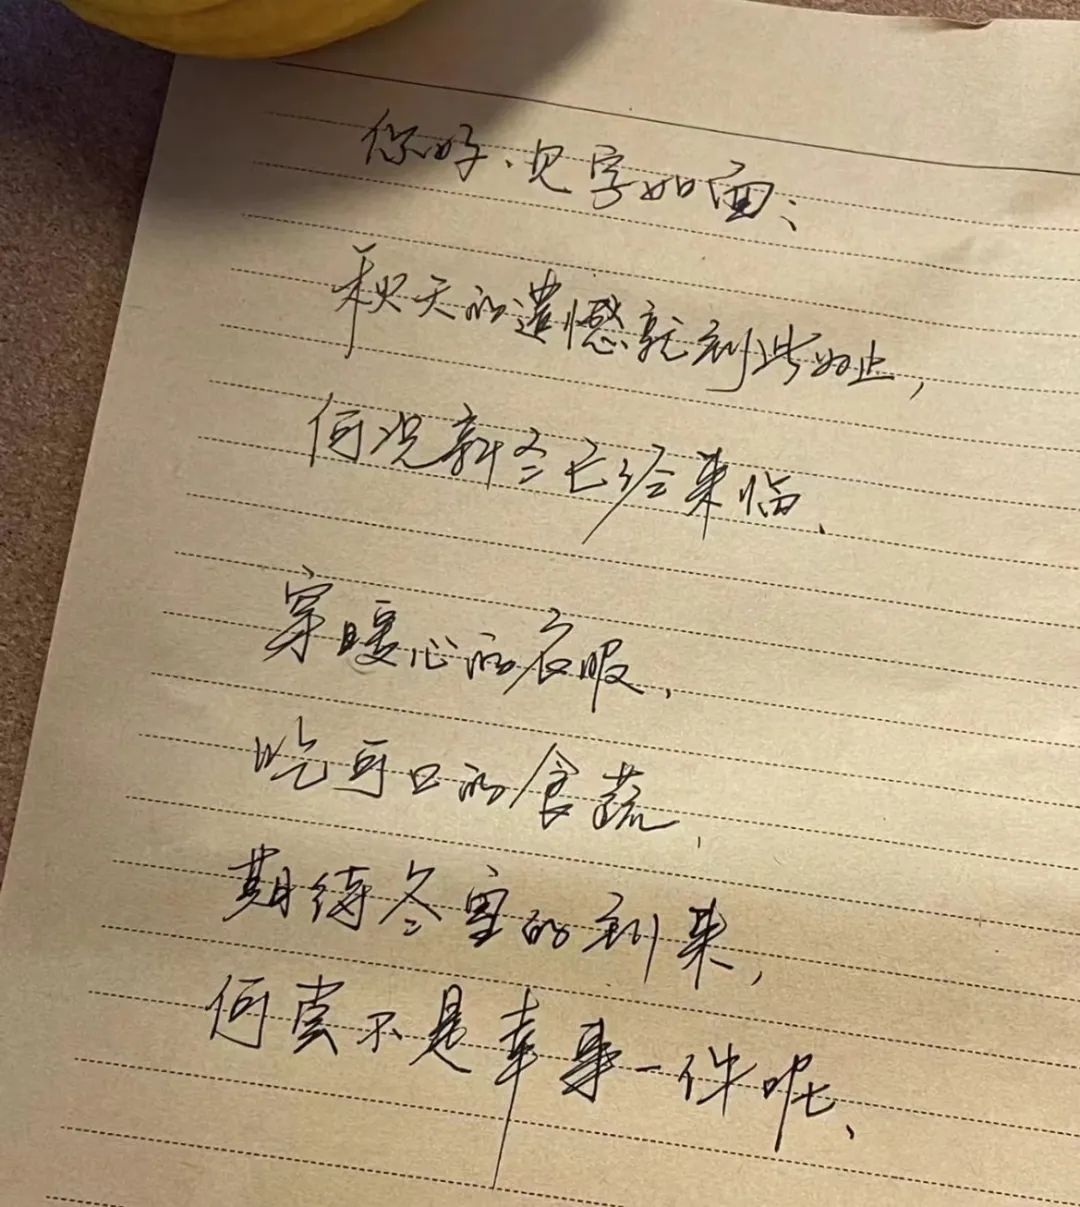 你好.见字如面:
秋天的遗憾就到此为止,
何况新冬已经来临、
穿暖心的衣服、
吃可口的食蔬,
期待冬雪的到来,
何尝不是幸事一件呢、